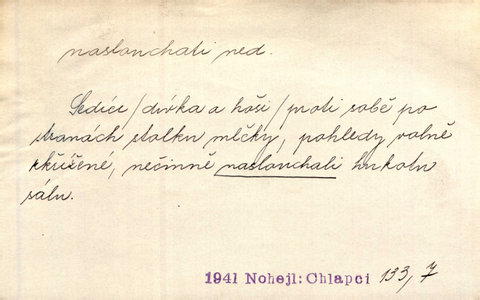 naslouchati ned.
Sedíce /dívka a hoši/ proti sobě po
stranách stolku mlčky, pohledy volně
zkřížené, nečinně naslouchali hukotu
sálu.
1941 Nohejl: Chlapci 133, 7